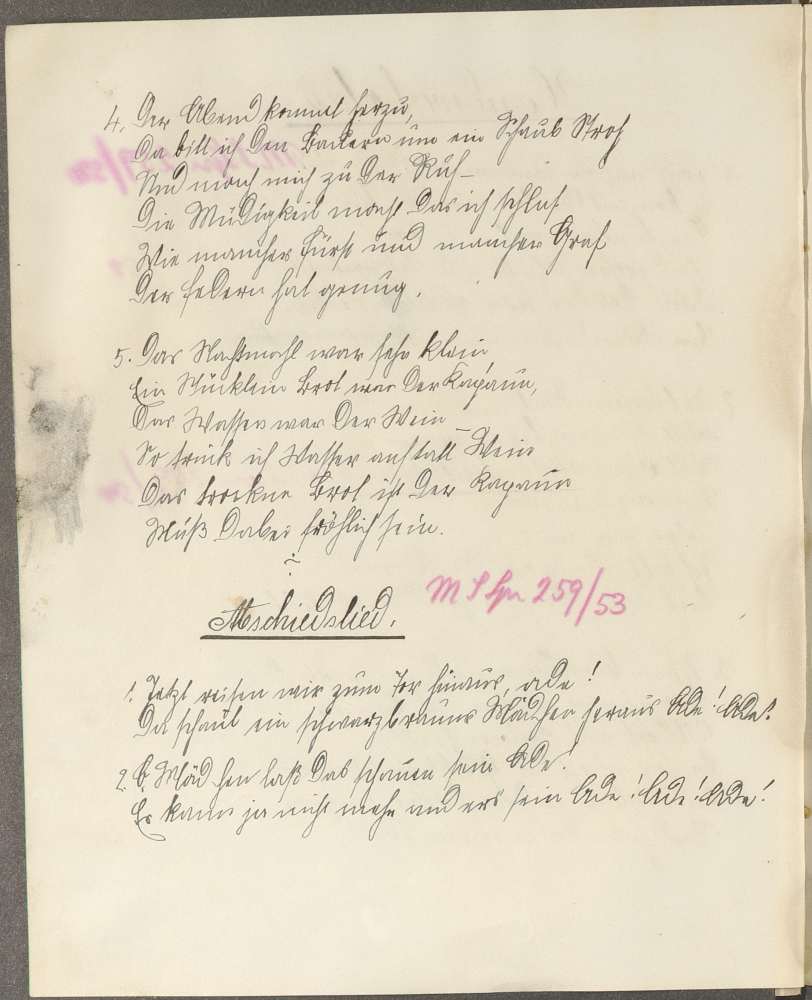 4. Der Abend kommt herzu,
Da bitt ich den Bauern um ein Schaub Stroh
Und mach mich zu der Ruh –
Die Müdigkeit macht das ich schlaf
Wie mancher Fürst und mancher Graf
Der Federn hat genug.
5. Das Nachtmahl war sehr klein,
Ein Stücklein Brot war der Kapaun,
Das Wasser war der Wein –
So trink ich Wasser anstatt Wein
Das trockne Brot ist der Kapaun
Muß dabei fröhlich sein.
Abschiedslied.
M S Spr 259/53
1. Jetzt reisen wir zum Tor hinaus, ade!
Da schaut ein schwarzbrauns Mädchen heraus Ade! Ade!
2. O, Mädchen laß das schauen sein Ade!
Es kann ja nicht mehr anders sein Ade! Ade! Ade!